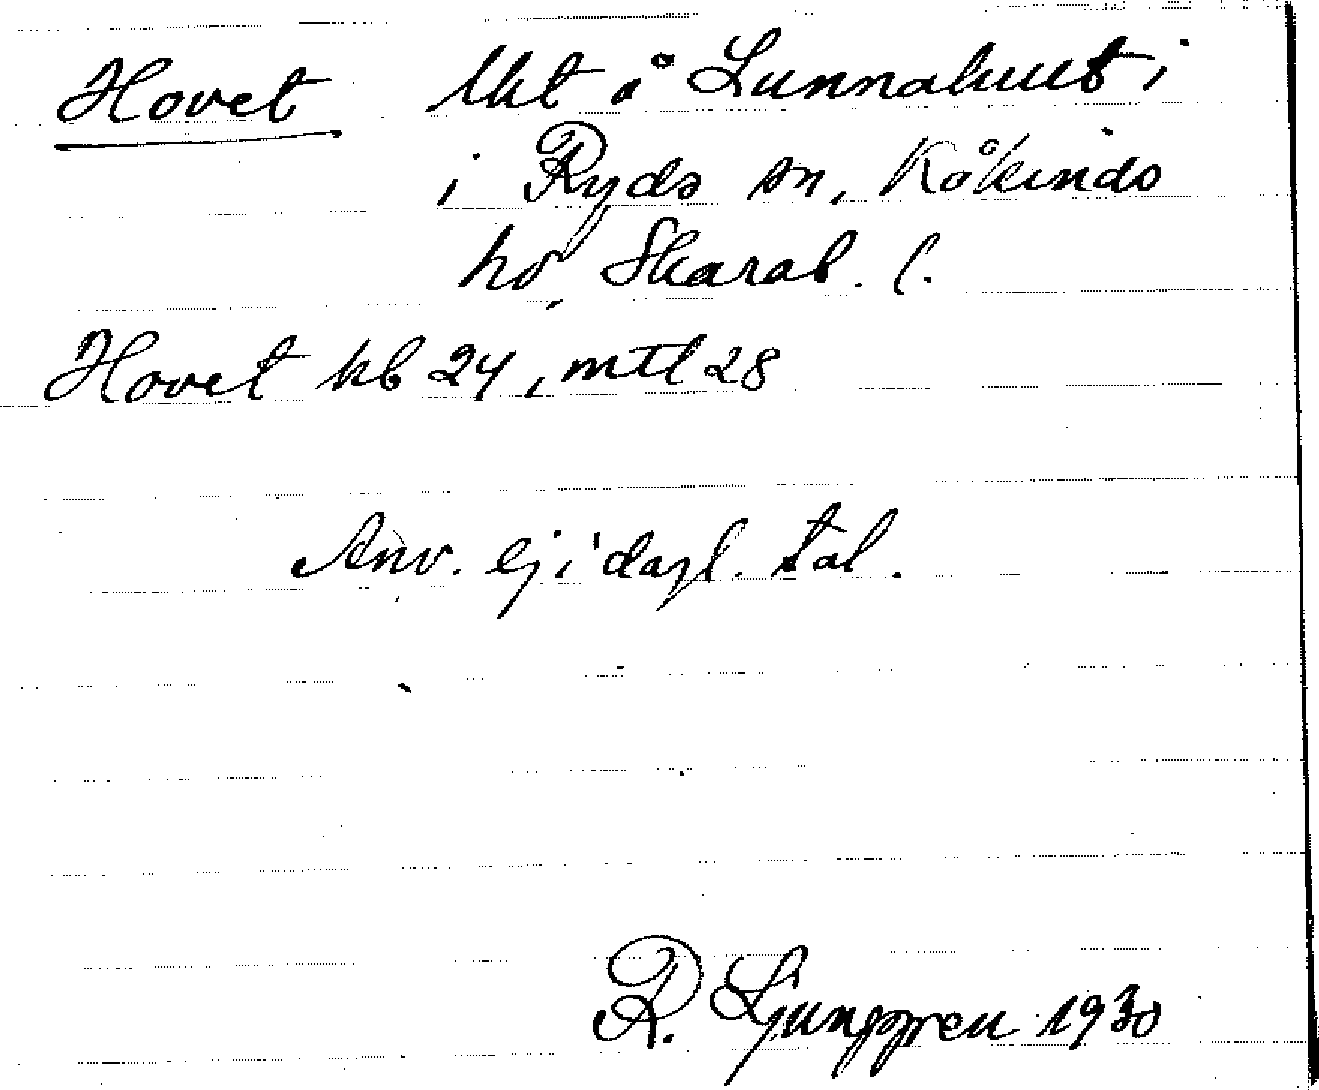 Hovet lht å Lunnahult i
i Ryds sn, Kåkinds
hd, Skarab. l.
Hovet kb 24, mtl 28
Anv. ej i dagl. tal.
R. Ljunggren 1930